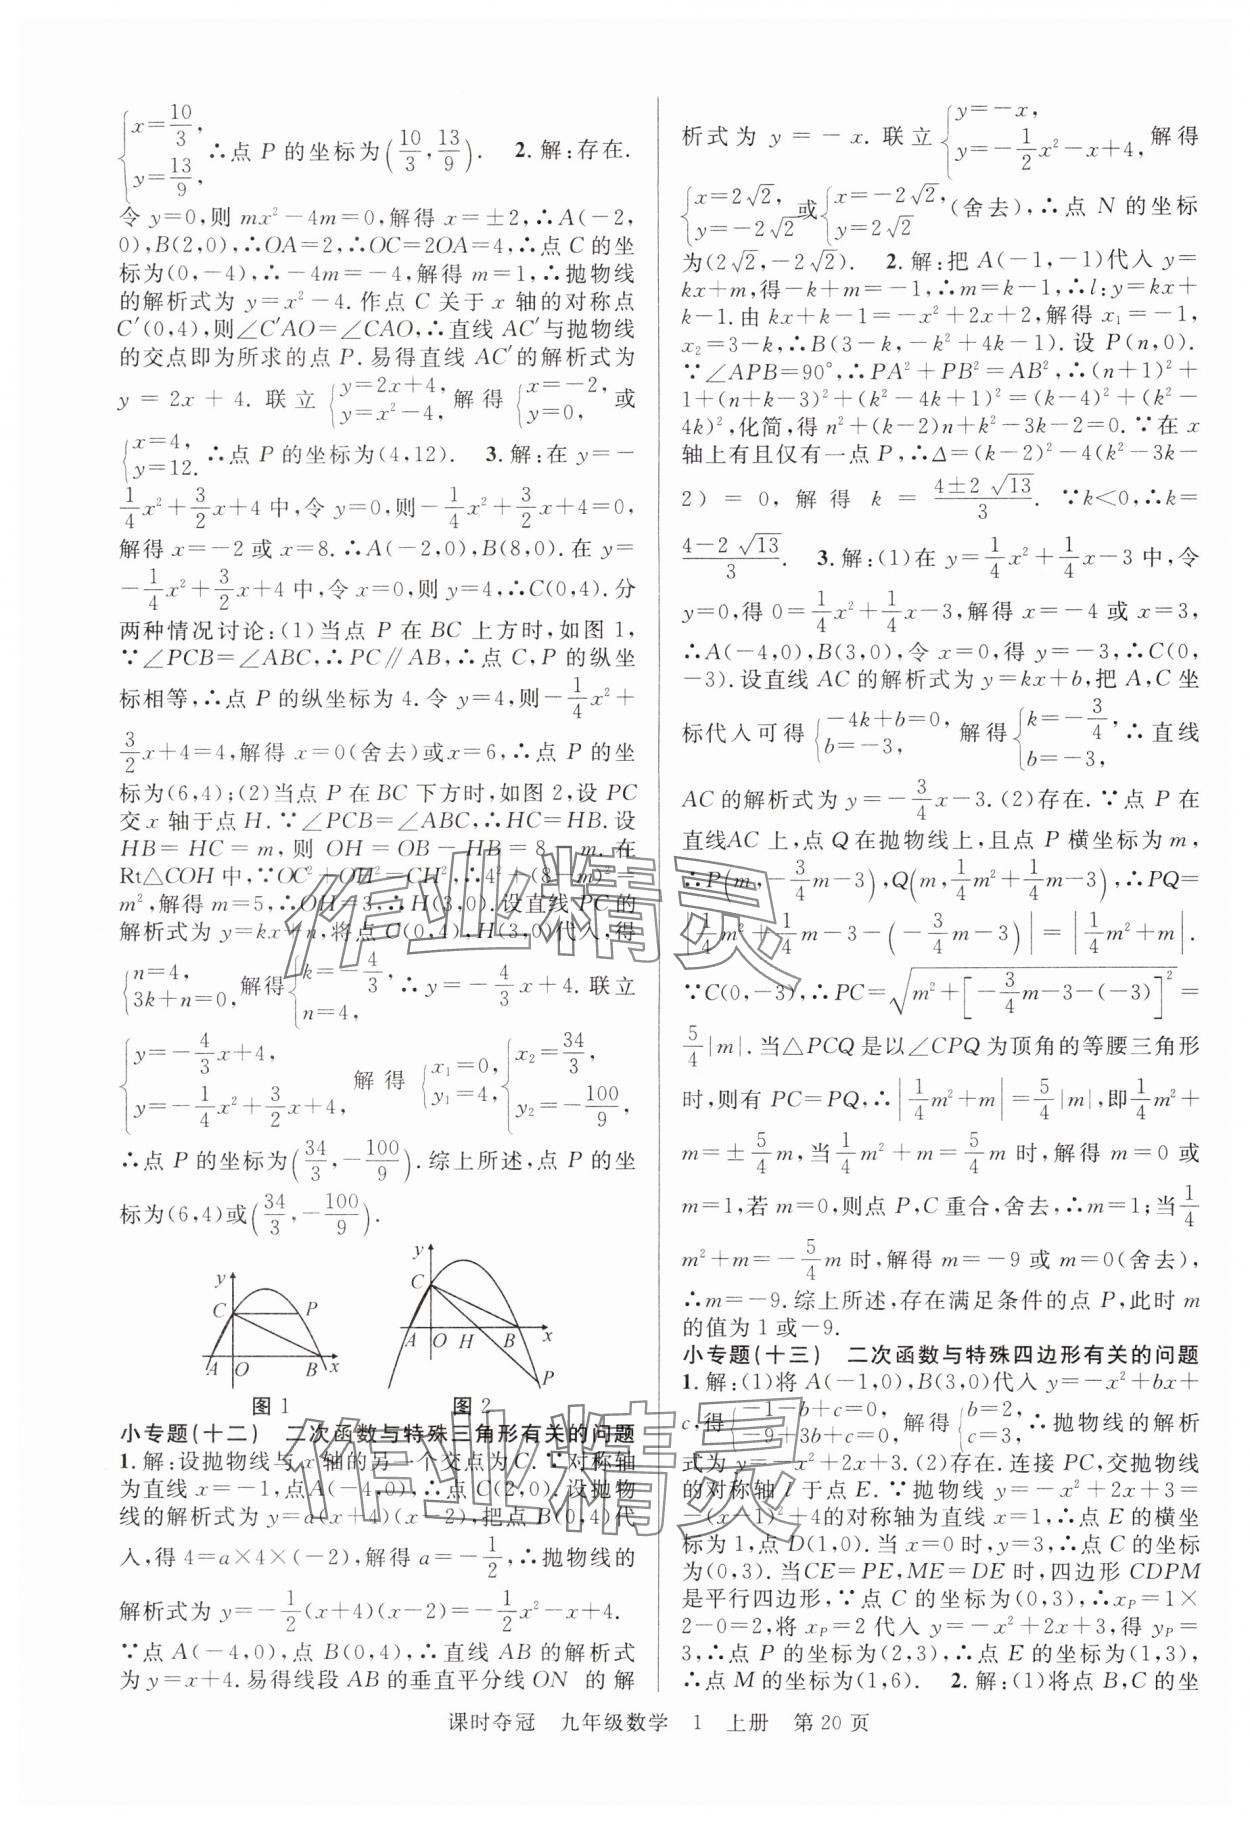 {x=10/3, y=13/9, ∴点 P 的坐标为(10/3,13/9). 2.解:存在.
令 y=0,则 mx²-4m=0,解得 x=±2,∴A(-2,
0),B(2,0),∴OA=2,∴OC=2OA=4,∴点 C 的坐
标为(0,-4),∴-4m=-4,解得 m=1,∴抛物线
的解析式为 y=x²-4.作点 C 关于 x 轴的对称点
C′(0,4),则∠C′AO=∠CAO,∴直线 AC′与抛物线
的交点即为所求的点 P.易得直线 AC′的解析式为
y=2x+4.联立{y=2x+4, y=x²-4,解得{x=-2, y=0,或
{x=4, y=12.∴点 P 的坐标为(4,12). 3.解:在 y=-
1/4x²+3/2x+4 中,令 y=0,则-1/4x²+3/2x+4=0,
解得 x=-2 或 x=8.∴A(-2,0),B(8,0).在 y=
-1/4x²+3/2x+4 中,令 x=0,则 y=4,∴C(0,4).分
两种情况讨论:(1)当点 P 在 BC 上方时,如图 1,
∵∠PCB=∠ABC,∴PC∥AB,∴点 C,P 的纵坐
标相等,∴点 P 的纵坐标为 4.令 y=4,则-1/4x²+
3/2x+4=4,解得 x=0(舍去)或x=6,∴点 P 的坐
标为(6,4);(2)当点 P 在 BC 下方时,如图 2,设 PC
交 x 轴于点 H.∵∠PCB=∠ABC,∴HC=HB.设
HB=HC=m,则 OH=OB-HB=8-m.在
Rt△COH 中,∵OC²+OH²=CH²,∴4²+(8-m)²=
m²,解得 m=5,∴OH=3,∴H(3,0).设直线 PC 的
解析式为 y=kx+n,将点 C(0,4),H(3,0)代入,得
{n=4, 3k+n=0,解得{k=-4/3, n=4,∴y=-4/3x+4.联立
{y=-4/3x+4, y=-1/4x²+3/2x+4,解得{x₁=0, y₁=4,{x₂=34/3, y₂=-100/9,
∴点 P 的坐标为(34/3,-100/9).综上所述,点 P 的坐
标为(6,4)或(34/3,-100/9).
y C P A O B x
图 1
y C A O H B x P
图 2
小专题(十二) 二次函数与特殊三角形有关的问题
1.解:设抛物线与 x 轴的另一个交点为C.∵对称轴
为直线 x=-1,点A(-4,0),∴点 C(2,0).设抛物
线的解析式为 y=a(x+4)(x-2),把点 B(0,4)代
入,得 4=a×4×(-2),解得 a=-1/2,∴抛物线的
解析式为 y=-1/2(x+4)(x-2)=-1/2x²-x+4.
∵点 A(-4,0),点 B(0,4),∴直线 AB 的解析式
为 y=x+4.易得线段 AB 的垂直平分线 ON 的解
析式为 y=-x.联立{y=-x, y=-1/2x²-x+4,解得
{x=2√2, y=-2√2或{x=-2√2, y=2√2(舍去),∴点 N 的坐标
为(2√2,-2√2). 2.解:把 A(-1,-1)代入 y=
kx+m,得-k+m=-1,∴m=k-1,∴l:y=kx+
k-1.由 kx+k-1=-x²+2x+2,解得 x₁=-1,
x₂=3-k,∴B(3-k,-k²+4k-1).设 P(n,0).
∵∠APB=90°,∴PA²+PB²=AB²,∴(n+1)²+
1+(n+k-3)²+(k²-4k+1)²=(k-4)²+(k²-
4k)²,化简,得 n²+(k-2)n+k²-3k-2=0.∵在 x
轴上有且仅有一点 P,∴Δ=(k-2)²-4(k²-3k-
2)=0,解得 k=(4±2√13)/3.∵k<0,∴k=
(4-2√13)/3. 3.解:(1)在 y=1/4x²+1/4x-3 中,令
y=0,得 0=1/4x²+1/4x-3,解得 x=-4 或 x=3,
∴A(-4,0),B(3,0),令 x=0,得 y=-3,∴C(0,
-3).设直线 AC 的解析式为 y=kx+b,把 A,C 坐
标代入可得{-4k+b=0, b=-3,解得{k=-3/4, b=-3,∴直线
AC 的解析式为 y=-3/4x-3.(2)存在.∵点 P 在
直线AC 上,点 Q 在抛物线上,且点 P 横坐标为 m,
∴P(m,-3/4m-3),Q(m,1/4m²+1/4m-3),∴PQ=
|1/4m²+1/4m-3-(-3/4m-3)|=|1/4m²+m|.
∵C(0,-3),∴PC=√(m²+[-3/4m-3-(-3)]²)=
5/4|m|.当△PCQ 是以∠CPQ 为顶角的等腰三角形
时,则有 PC=PQ,∴|1/4m²+m|=5/4|m|,即1/4m²+
m=±5/4m,当1/4m²+m=5/4m 时,解得 m=0 或
m=1,若 m=0,则点 P,C 重合,舍去,∴m=1;当1/4
m²+m=-5/4m 时,解得 m=-9 或 m=0(舍去),
∴m=-9.综上所述,存在满足条件的点 P,此时 m
的值为 1 或-9.
小专题(十三) 二次函数与特殊四边形有关的问题
1.解:(1)将 A(-1,0),B(3,0)代入 y=-x²+bx+
c,得{-1-b+c=0, -9+3b+c=0,解得{b=2, c=3,∴抛物线的解析
式为 y=-x²+2x+3.(2)存在.连接 PC,交抛物线
的对称轴 l 于点 E.∵抛物线 y=-x²+2x+3=
-(x-1)²+4的对称轴为直线 x=1,点 E 的横坐
标为 1,点 D(1,0).当 x=0 时,y=3,∴点 C 的坐标
为(0,3).当CE=PE,ME=DE 时,四边形 CDPM
是平行四边形,∵点 C 的坐标为(0,3),∴xP=1×
2-0=2,将 xP=2 代入 y=-x²+2x+3,得 yP=
3,∴点 P 的坐标为(2,3),∴点 E 的坐标为(1,3),
∴点 M 的坐标为(1,6). 2.解:(1)将点 B,C 的坐
课时夺冠 九年级数学 1 上册 第 20 页
作业精灵
作业精灵